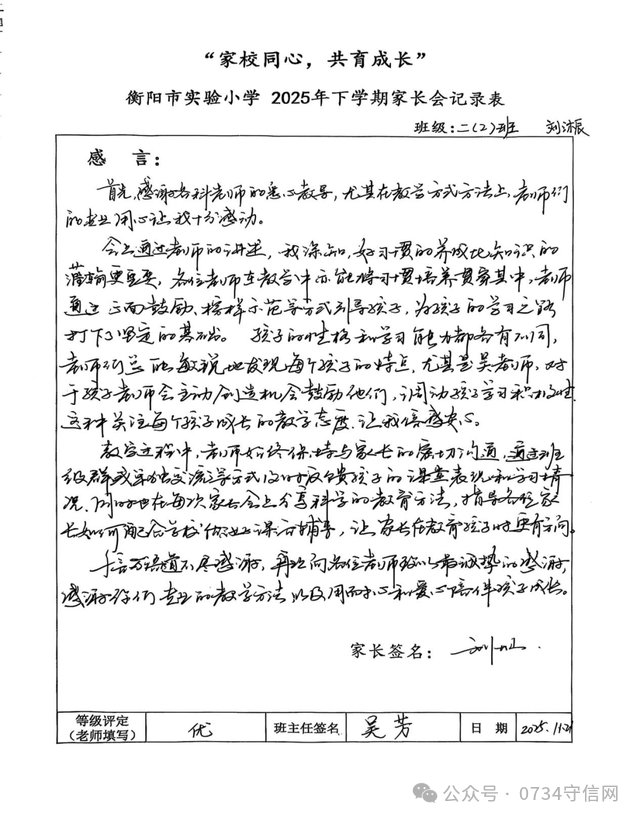 “家校同心，共育成长”
衡阳市实验小学 2025年下学期家长会记录表
班级:二(2)班 刘沐辰
感 言:
首先,感谢各科老师的悉心教导,尤其在教学方式方法上,老师们
的专业用心让我十分感动。
会上通过老师的讲述,我深知,好习惯的养成比知识的
灌输更重要,各位老师在教学中亦能将习惯培养贯穿其中,老师
通过正面鼓励、榜样示范等方式引导孩子,为孩子的学习之路
打下了坚定的基础。孩子的性格和学习能力都各有不同,
老师们总能敏锐地发现每个孩子的特点,尤其是吴老师,对
于孩子老师会主动创造机会鼓励他们,调动孩子学习积极性
这种关注每个孩子成长的教学态度,让我倍感安心。
教学过程中,老师始终保持与家长的密切沟通,通过班
级群或单独交流等方式及时反馈孩子的课堂表现和学习情
况,同时也在每次家长会上分享科学的教育方法,指导各位家
长如何配合学校做好课后辅导,让家长在教育孩子时更有方向。
千言万语道不尽感谢,再次向各位老师致以最诚挚的感谢,
感谢你们专业的教学方法以及用耐心和爱心陪伴孩子成长。
家长签名: 刘
等级评定
(老师填写) 优 班主任签名 吴芳 日 期 2025.11.21
公众号 · 0734守信网